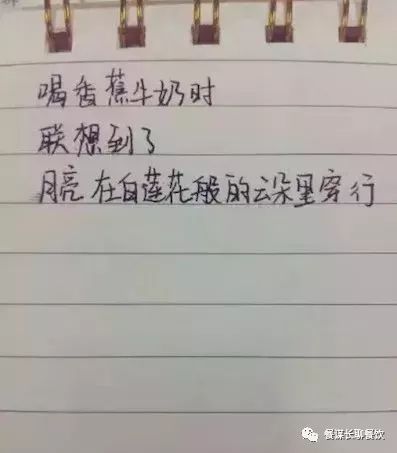 喝香蕉牛奶时
联想到了
月亮在白莲花般的云朵里穿行
餐谋长聊餐饮